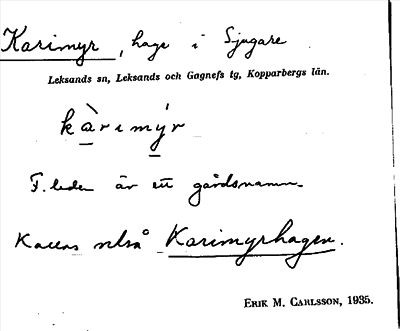 Karimyr, hage i Sjugare
Leksands sn, Leksands och Gagnefs tg, Kopparbergs län.
kàrimýr
F.leden är ett gårdsnamn.
Kallas också Karimyrhagen.
ERIK M. CARLSSON, 1935.